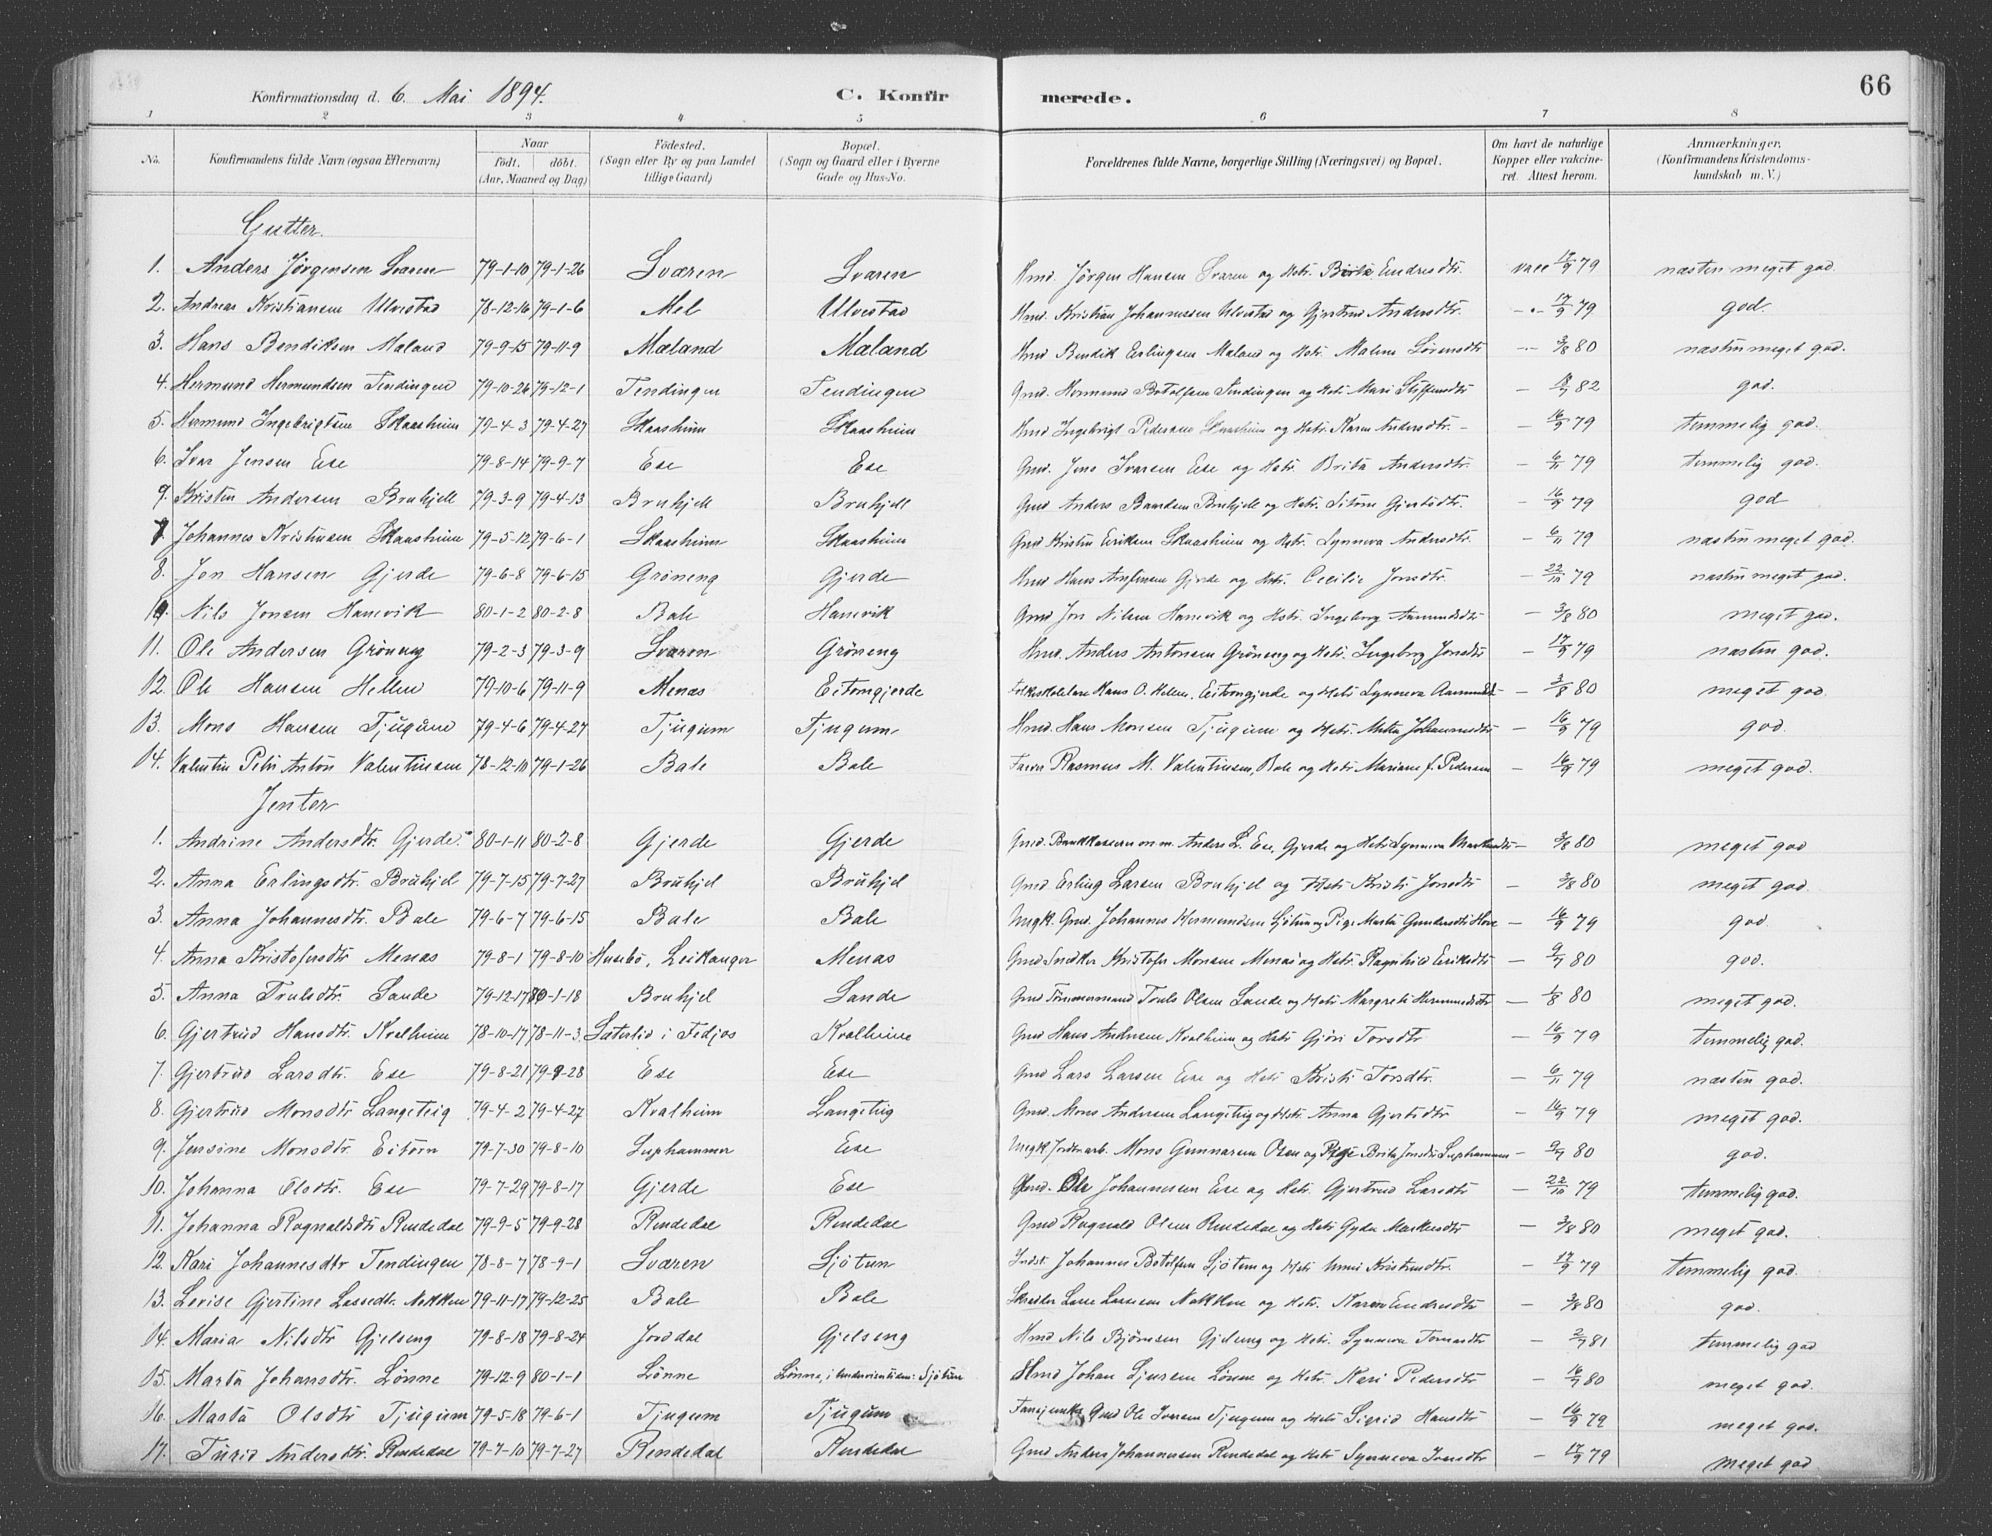 66
Konfirmationsdag d. 6. Mai 1894. C. Konfir merede.
1 2 3 4 5 6 7 8
No. Konfirmandens fulde Navn (ogsaa Efternavn) Naar født, døbt. (Aar, Maaned og Dag) Fødested. (Sogn eller By og paa Landet tillige Gaard) Bopæl. (Sogn og Gaard eller i Byerne Gade og Hus-No. Forældrenes fulde Navne, borgerlige Stilling (Næringsvei) og Bopæl. Om havt de naturlige Kopper eller vaccineret. Attest herom. Anmærkninger. (Konfirmandens Kristendomskundskab m. V.)
Gutter.
1. Anders Jørgensen Sværen 79-1-10 79-1-26 Sværen Sværen Gmd. Jørgen Hansen Sværen og Hstr. Brite Endresdtr. vacc 17/9 79 næsten meget god.
2. Andreas Kristiansen Ulvestad 78-12-16 79-1-6 Mel Ulvestad Hmd. Kristian Johannessen Ulvestad og Gjertrud Andersdtr. -"- 17/9 79 god.
3. Hans Bendiksen Mæland 79-9-15 79-11-9 Mæland Mæland Hmd Bendik Erlingsen Mæland og Hstr. Malene Sørensdtr -"- 3/8 80 næsten meget god.
4. Hermund Hermundsen Tendingen 79-10-26 79-12-1 Tendingen Tendingen Gmd. Hermund Botolfsen Tendingen og Hstr. Mari Steffensdtr — 82 god.
5. Hermund Ingebrigtsen Skaasheim 79-4-3 79-4-27 Skaasheim Skaasheim Hmd Ingebrigt Pedersen Skaasheim og Hstr. Karen Andersdtr. — 16/9 79 temmelig god.
6. Ivar Jensen Ese 79-8-14 79-9-7 Ese Ese Gmd. Jens Ivarsen Ese og Hstr. Brita Andersdtr. — 6/11 79 temmelig god.
9. Kristen Andersen Bruhjell 79-3-9 79-4-13 Bruhjell Bruhjell Gmd. Anders Baardsen Bruhjell og Hstr. Gjertsdtr. — 16/9 79 god
7. Johannes Kristensen Skaasheim 79-5-12 79-6-1 Skaasheim Skaasheim Gmd Kristen Eriksen Skaasheim og Hstr. Synneva Andersdtr. — 6/11 79 næsten meget god.
8. Jon Hansen Gjerde 79-6-8 79-6-15 Grøneng Gjerde Hmd Hans Gjerde og Hstr. Cecilie Jonsdtr. — 22/10 79 næsten meget god.
10. Nils Jonsen Hanevik 80-1-2 80-2-8 Bale Hanevik Gmd Jon Nilsen Hanevik og Hstr. Ingeborg Aamundsdtr — 3/8 80 meget god.
11. Ole Andersen Grøneng 79-2-3 79-3-9 Sværen Grøneng Hmd. Anders Antonsen Grøneng og Hstr. Ingeborg Jonsdtr — 17/9 79 næsten god.
12. Ole Hansen Hellen 79-10-6 79-11-9 Menæs Eitorngjerde Folkeskolelærer Hans O. Hellen, Eitorngjerde og Hstr Synneva — 3/8 80 meget god.
13. Mons Hansen Tjugum 79-4-6 79-4-27 Tjugum Tjugum Hmd. Hans Monsen Tjugum og Hstr. Metta Johannesdtr — 16/9 79 god.
14. Valentin Peter Anton Valentinsen 78-12-10 79-1-26 Bale Bale Farver Rasmus M. Valentinsen, Bale og Hstr Mariane f. Pedersen — 16/9 79 meget god.
Jenter
1. Andrine Andersdtr. Gjerde. 80-1-11 80-2-8 Gjerde Gjerde Gmd. Bankkasserer m.m. Anders L. Ese, Gjerde og Hstr Synneva — 3/8 80 meget god
2. Anna Erlingsdtr. Bruhjel 79-7-15 79-7-27 Bruhjel Bruhjel Gmd Erling Larsen Bruhjel og Hstr Kristi Jonsdtr — 3/8 80 meget god.
3. Anna Johannesdtr. Bale 79-6-7 79-6-15 Bale Bale Ungk. Gmd. Johannes Hermundsen Sjøtun og Pige Marta Hove — 16/9 79 god.
4. Anna Kristofersdtr Menæs 79-8-1 79-8-10 Husebø, Leikanger Menæs Gmd Snedker Kristofer Monsen Menæs og Hstr. Ragnhild Eriksdtr — 9/7 80 god.
5. Anna Trulsdtr. Sande 79-12-17 80-1-18 Bruhjel Sande Gmd Tømmermand Truls Olsen Sande og Hstr Margreti Hermundsdtr — 1/8 80 meget god.
6. Gjertrud Hansdtr. Kvalheim 78-10-17 78-11-3 Sæterlid i Fedjos Kvalheim Gmd Hans Andersen Kvalheim og Hstr Gjøri Torsdtr — 16/9 79 temmelig god.
7. Gjertrud Larsdtr. Ese 79-8-21 79-9-28 Ese Ese Gmd Lars Larsen Ese og Hstr Kristi Torsdtr. — 6/11 79 næsten god.
8. Gjertrud Monsdtr Langeteig 79-4-2 79-4-27 Kvalheim Langeteig Gmd. Mons Andersen Langeteig og Hstr. Anna Gjertsdtr — 16/9 79 meget god.
9. Jensine Monsdtr. Eitorn 79-7-30 79-8-10 Suphammer Ese Ungk Jordarb. Mons Gunnarsen Olsen og Pige Brita Jonsdtr Suphammer — 9/7 80 god.
10. Johanna Olsdtr. Ese 79-7-29 79-8-17 Gjerde Ese Gmd. Ole Johannesen Ese og Hstr. Gjertrud Larsdtr — 22/10 79 temmelig god.
11. Johanna Ragnaldsdtr Rendedal 79-9-5 79-9-28 Rendedal Rendedal Gmd Ragnald Olsen Rendedal og Hstr Gyda Markusdtr — 3/8 80 meget god.
12. Kari Johannesdtr Tendingen 78-8-7 78-9-1 Sværen Sjøtun Indst. Johannes Botolfsen Sjøtun og Hstr Unni Kristensdtr. — 17/9 79 temmelig god.
13. Lovise Gjertine Lassedtr. Nøkken 79-11-17 79-12-25 Bale Bale Skrædder Lasse Larsen Nøkken og Hstr. Karen Endresdtr — 3/8 80 god.
14. Maria Nilsdtr Gjelseng 79-8-18 79-8-24 Jorddal Gjelseng Hmd Nils Bjørnsen Gjelseng og Hstr. Synneva — 2/7 81 temmelig god
15. Marta Johansdtr. Lønne 79-12-9 80-1-1 Lønne Lønne, i Undervistiden: Sjøtun Hmd Johan Sjursen Lønne og Hstr. Kari Pedersdtr — 16/7 80 meget god.
16. Marta Olsdtr Tjugum 79-5-18 79-6-1 Tjugum Tjugum Fanejunker Gmd Ole Iversen Tjugum og Hstr Sigrid Hansdtr — 16/9 79 meget god.
17. Turid Andersdtr. Rendedal 79-7-10 79-7-27 Rendedal Rendedal Gmd Anders Johannesen Rendedal og Hstr Synneva Iversdtr — 17/9 79 meget god